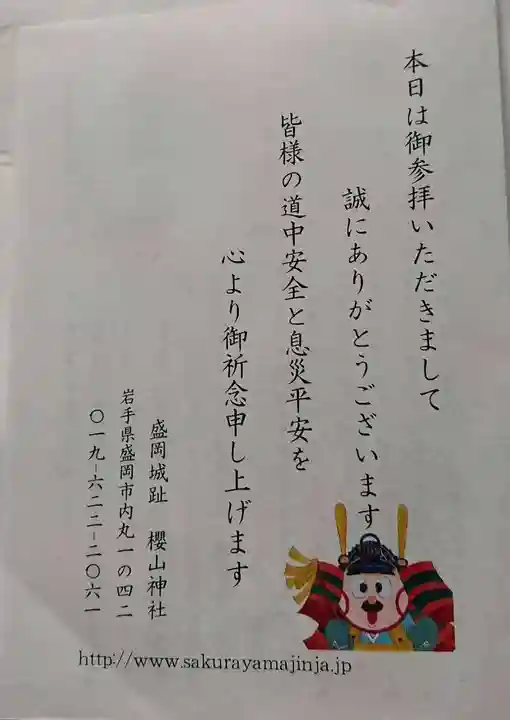 本日は御参拝いただきまして
誠にありがとうございます
皆様の道中安全と息災平安を
心より御祈念申し上げます
盛岡城趾　櫻山神社
岩手県盛岡市内丸一の四二
〇一九−六二二−二〇六一
http://www.sakurayamajinja.jp